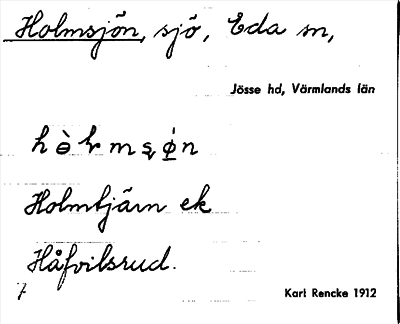 Holmsjön, sjö, Eda sn,
Jösse hd, Värmlands län
Holmtjärn ek
Håfvilsrud.
7
Karl Rencke 1912